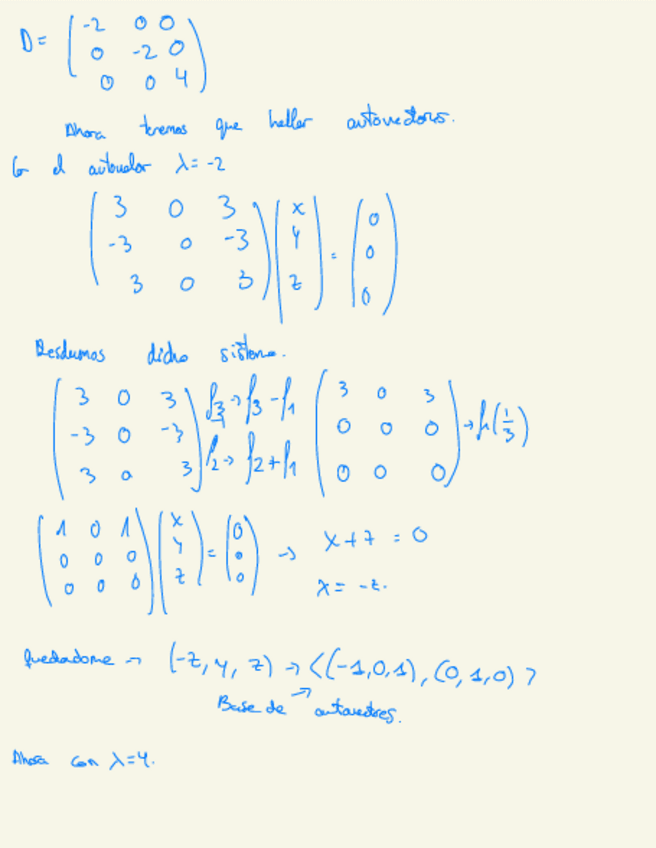 D = ( -2 0 0
0 -2 0
0 0 4 )
Ahora tenemos que hallar autovectores.
Con el autovalor λ = -2
( 3 0 3 ) ( x ) = ( 0 )
( -3 0 -3 ) ( y ) ( 0 )
( 3 0 3 ) ( z ) ( 0 )
Resolvemos dicho sistema.
( 3 0 3 ) f3 → f3 - f1 ( 3 0 3 )
( -3 0 -3 ) f2 → f2 + f1 ( 0 0 0 ) → f1 (1/3)
( 3 0 3 ) ( 0 0 0 )
( 1 0 1 ) ( x ) = ( 0 ) → x + z = 0
( 0 0 0 ) ( y ) ( 0 )
( 0 0 0 ) ( z ) ( 0 ) x = -z.
Quedadome → (-z, y, z) → <(-1,0,1), (0,1,0)>
Base de → autovectores.
Ahora con λ=4.